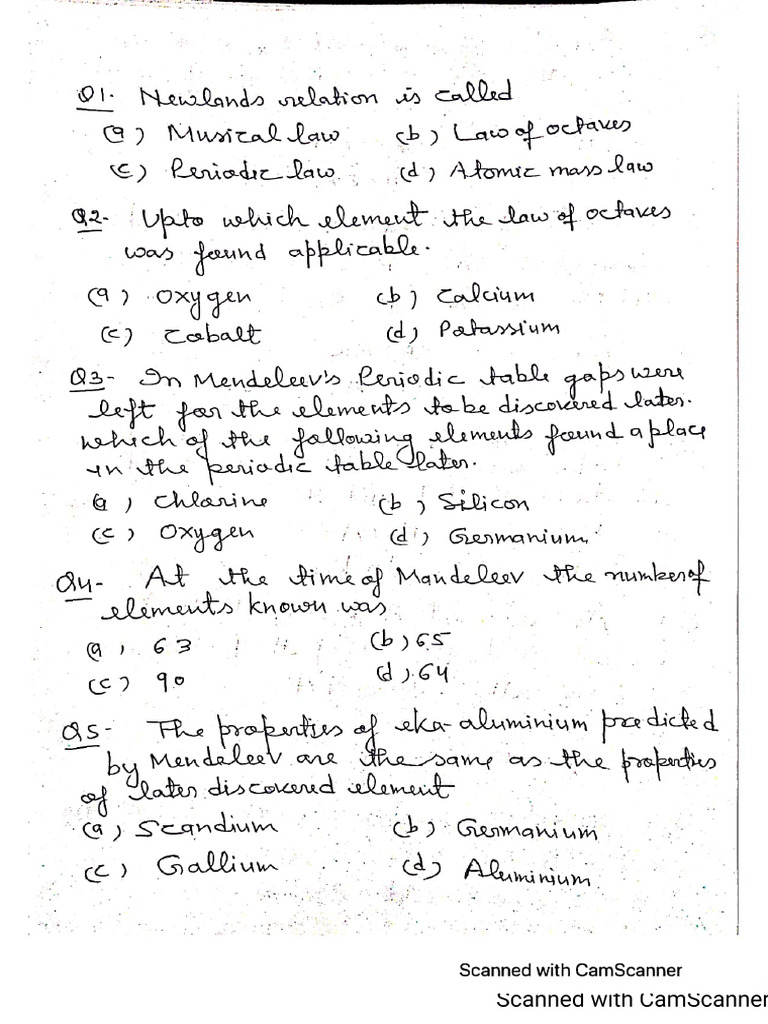 Q1. Newlands relation is called
(a) Musical law (b) Law of octaves
(c) Periodic law (d) Atomic mass law
Q2- Upto which element the law of octaves
was found applicable.
(a) Oxygen (b) Calcium
(c) Cobalt (d) Potassium
Q3- In Mendeleev's Periodic table gaps were
left for the elements to be discovered later.
which of the following elements found a place
in the periodic table later.
(a) Chlorine (b) Silicon
(c) Oxygen (d) Germanium.
Q4- At the time of Mandeleev the number of
elements known was
(a) 63 (b) 65
(c) 90 (d) 64
Q5- The properties of eka-aluminium predicted
by Mendeleev are the same as the properties
of later discovered element
(a) Scandium (b) Germanium
(c) Gallium (d) Aluminium
Scanned with CamScanner
Scanned with CamScanner